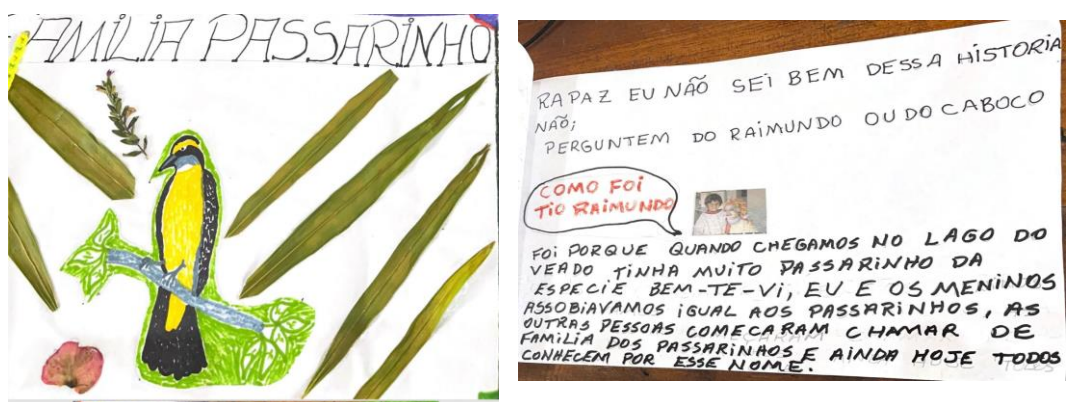 FAMÍLIA PASSARINHO
RAPAZ EU NÃO SEI BEM DESSA HISTORIA
NÃO;
PERGUNTEM DO RAIMUNDO OU DO CABOCO
COMO FOI
TIO RAIMUNDO
FOI PORQUE QUANDO CHEGAMOS NO LAGO DO
VEADO TINHA MUITO PASSARINHO DA
ESPECIE BEM-TE-VI, EU E OS MENINOS
ASSOBIAVAMOS IGUAL AOS PASSARINHOS, AS
OUTRAS PESSOAS COMEÇARAM CHAMAR DE
FAMILIA DOS PASSARINHOS E AINDA HOJE TODOS
CONHECEM POR ESSE NOME.